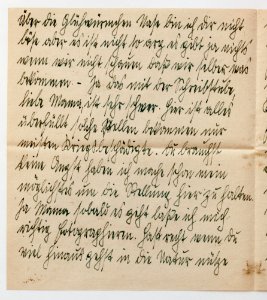 Über die Glühwürmchen Vase bin ich dir nicht
böse aber es ist nicht so arg es geht ja nichts
wenn wir nicht schauen daß wir selber was
bekommen - Ja das mit der Schreibstube
liebe Mama ist sehr schwer. Hier ist alles
überfüllt solche Stellen bekommen nur
meisten Kriegsbeschädigte. Du brauchst
keine Angst haben ich mache schon mein
möglichstes um die Stellung hier zu halten.
Ja Mama sobald es geht laße ich mich
richtig fotographieren. Hast recht wenn du
viel hinaus gehst in die Natur nütze